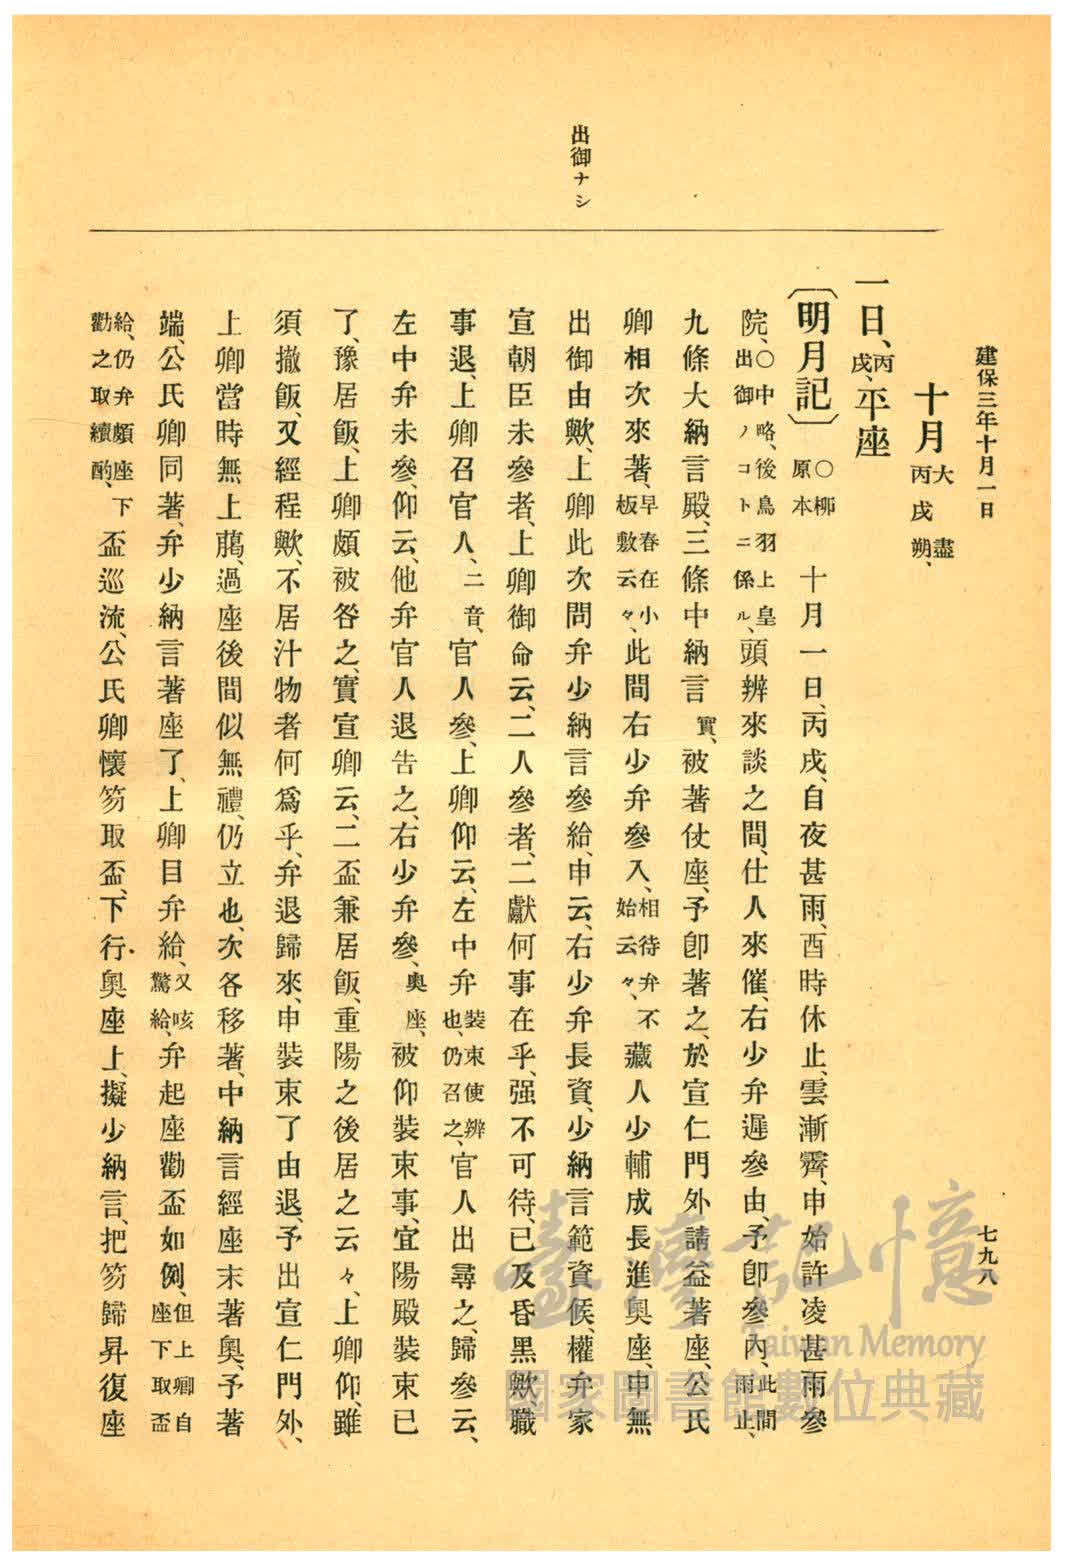 建保三年十月一日
七九八
十月大盡丙戌朔、
一日、丙戌、平座
〔明月記〕〇柳原本 十月一日、丙戌、自夜甚雨、酉時休止、雲漸霽、申始許凌甚雨參
院、〇中略、後鳥羽上皇出御ノコトニ係ル、頭辨來談之間、仕人來催、右少弁遲參由、予卽參內、此間雨止、
九條大納言殿、三條中納言實、被著仗座、予卽著之、於宣仁門外請益著座、公氏
卿相次來著、早春在小板敷云々、此間右少弁參入、相待弁不始云々、藏人少輔成長進奥座、申無
出御由歟、上卿此次問弁少納言參給、申云、右少弁長資、少納言範資候、權弁家
宣朝臣未參者、上卿御命云、二人參者、二獻何事在乎、强不可待、已及昏黑歟、職
事退、上卿召官人、二音、官人參、上卿仰云、左中弁裝束使辨也、仍召之、官人出尋之、歸參云、
左中弁未參、仰云、他弁官人退告之、右少弁參、奥座、被仰裝束事、宜陽殿裝束已
了、豫居飯、上卿頗被咎之、實宣卿云、二盃兼居飯、重陽之後居之云々、上卿仰、雖
須撤飯、又經程歟、不居汁物者何爲乎、弁退歸來、申裝束了由退、予出宣仁門外、
上卿當時無上﨟、過座後間似無禮、仍立也、次各移著、中納言經座末著奥、予著
端、公氏卿同著、弁少納言著座了、上卿目弁給、又咳驚給、弁起座勸盃如例、但上卿自座下取盃
給、仍弁頗座下勸之取續酌、盃巡流、公氏卿懷笏取盃、下行、奥座上、擬少納言、把笏歸昇復座
出御ナシ
臺灣記憶
Taiwan Memory
國家圖書館數位典藏